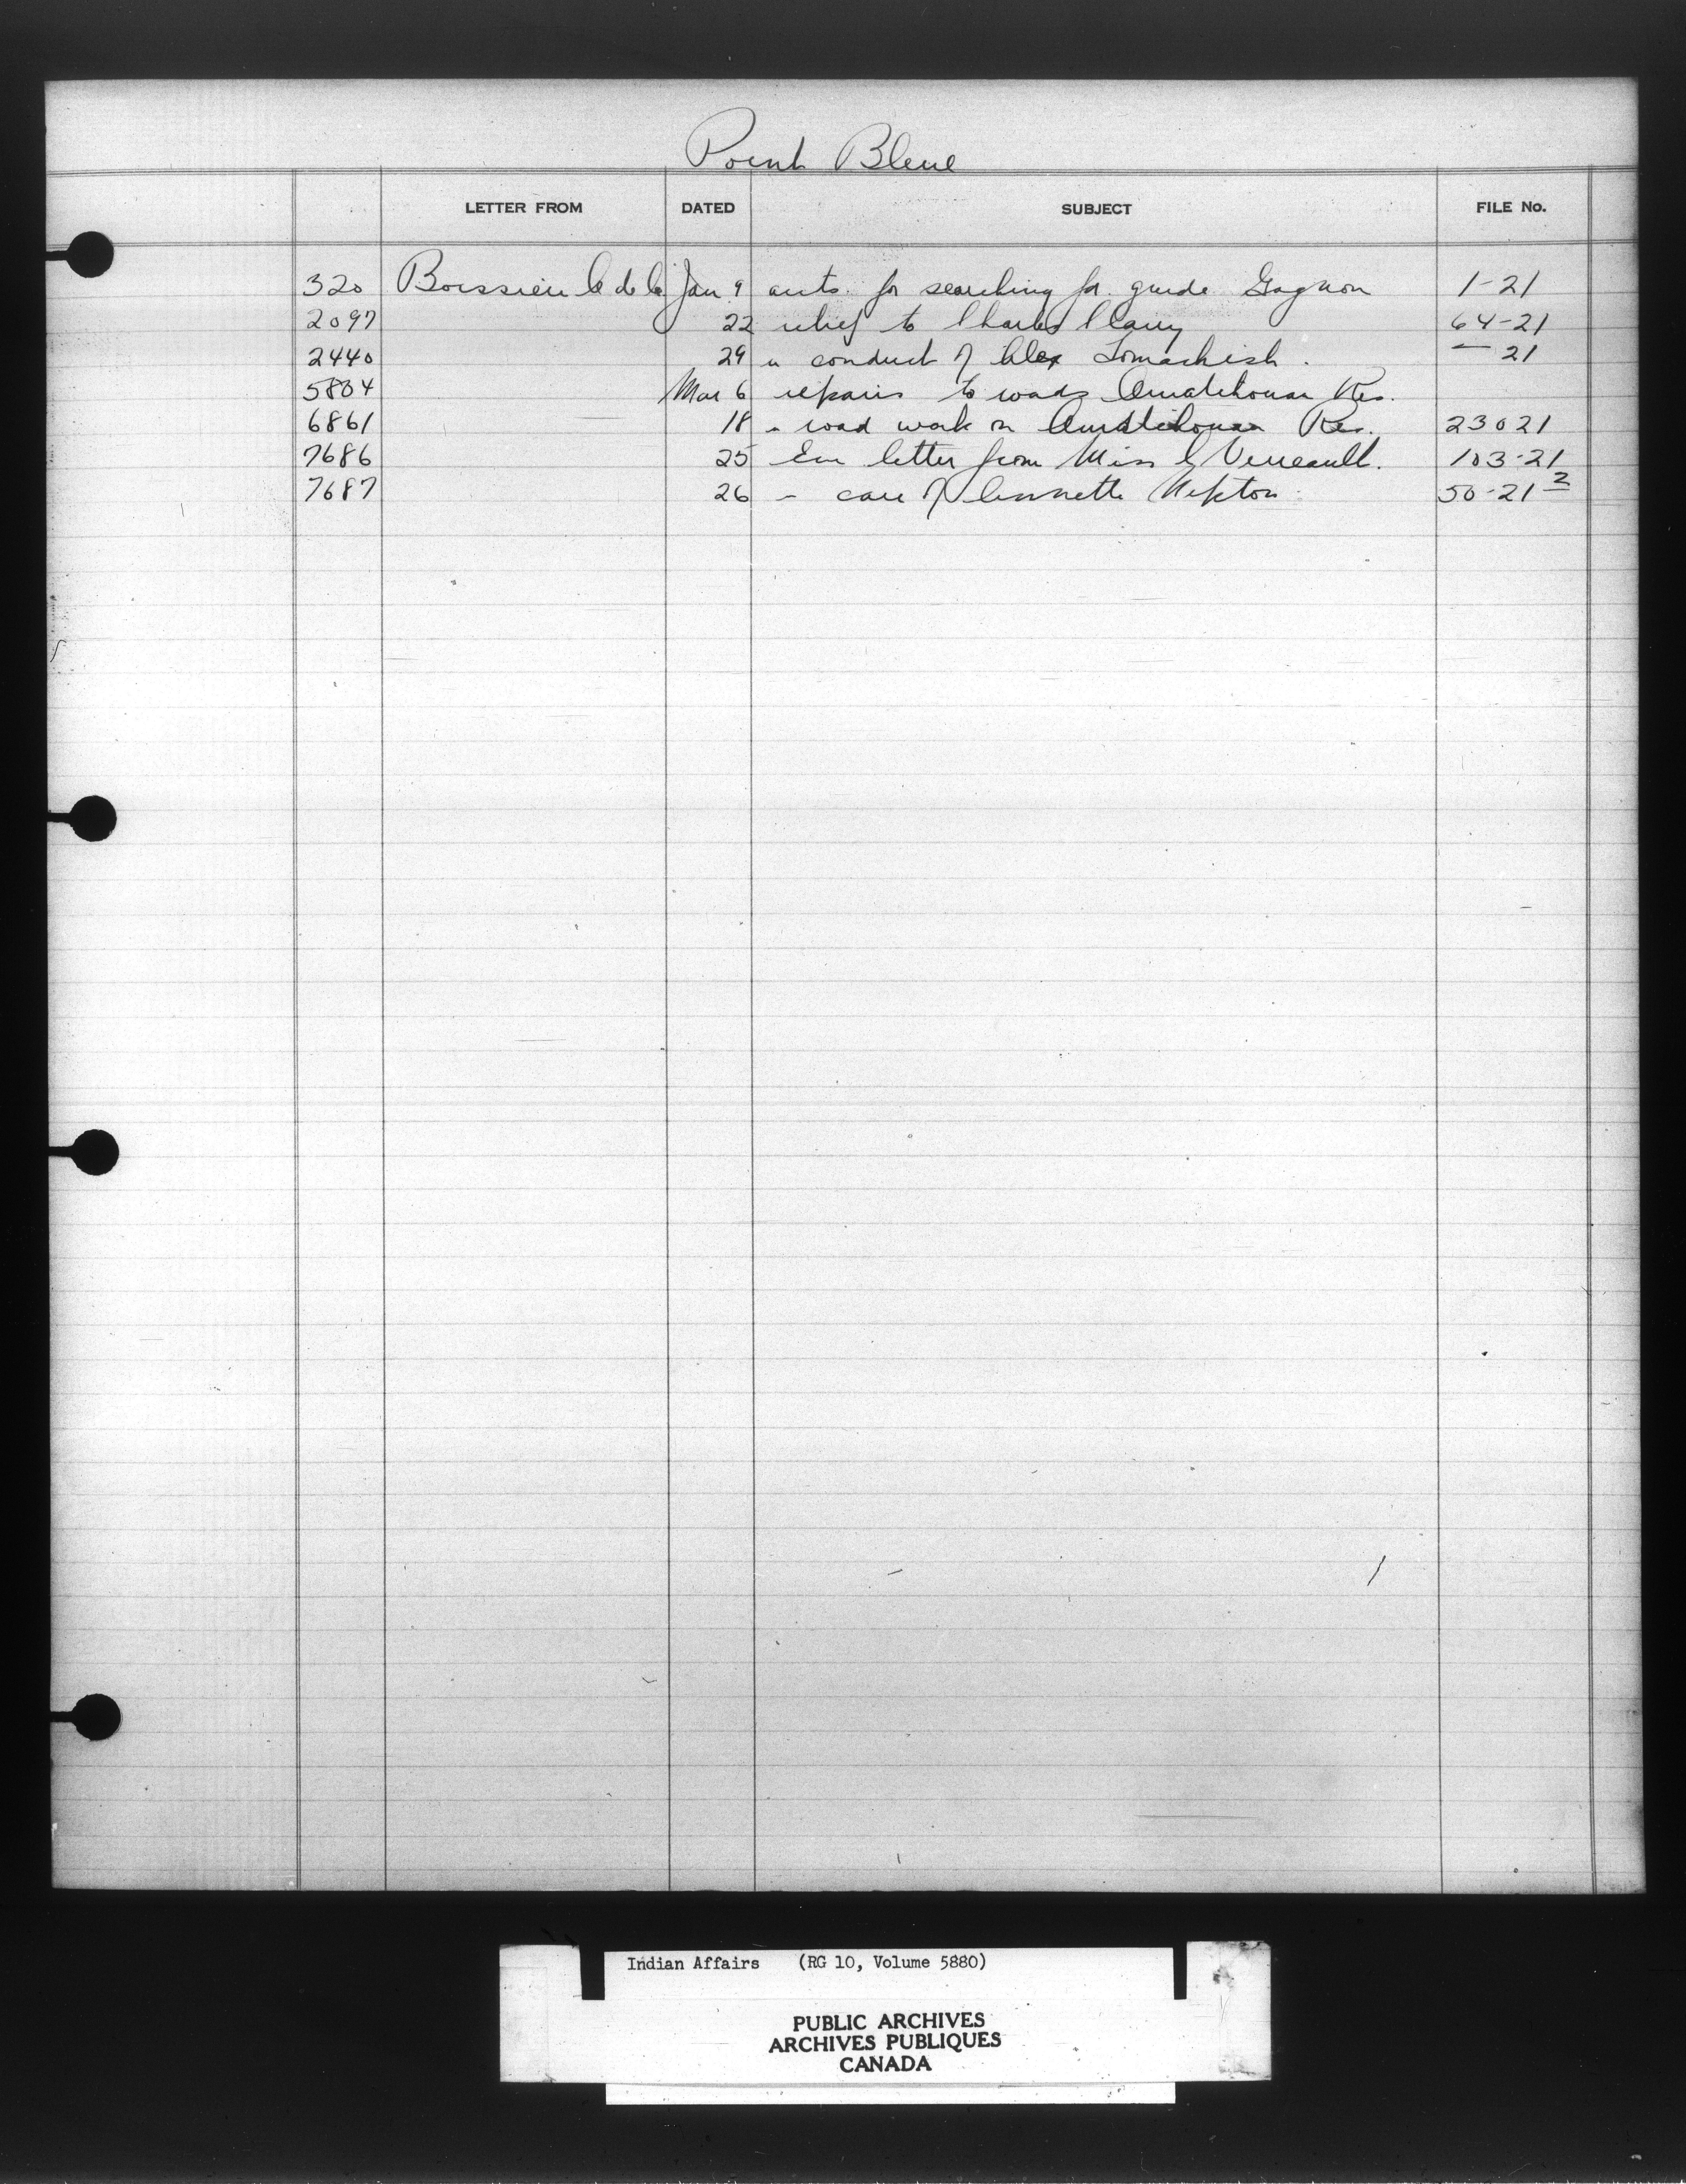 Point Bleue
LETTER FROM DATED SUBJECT FILE No.
320 Boissieu C de la Jan. 9 accts. for searching for guide Gagnon 1-21
2097 22 relief to Charles Cleary 64-21
2440 29 " conduct of Alex Tomachish. — 21
5804 Mar 6 repairs to roads Ouiatchouan Res.
6861 18 - road work on Ouiatchouan Res. 23021
7686 25 Enc letter from Miss Verreault. 103-21
7687 26 - care of Annette Nepton 50-21 2
Indian Affairs (RG 10, Volume 5880)
PUBLIC ARCHIVES
ARCHIVES PUBLIQUES
CANADA